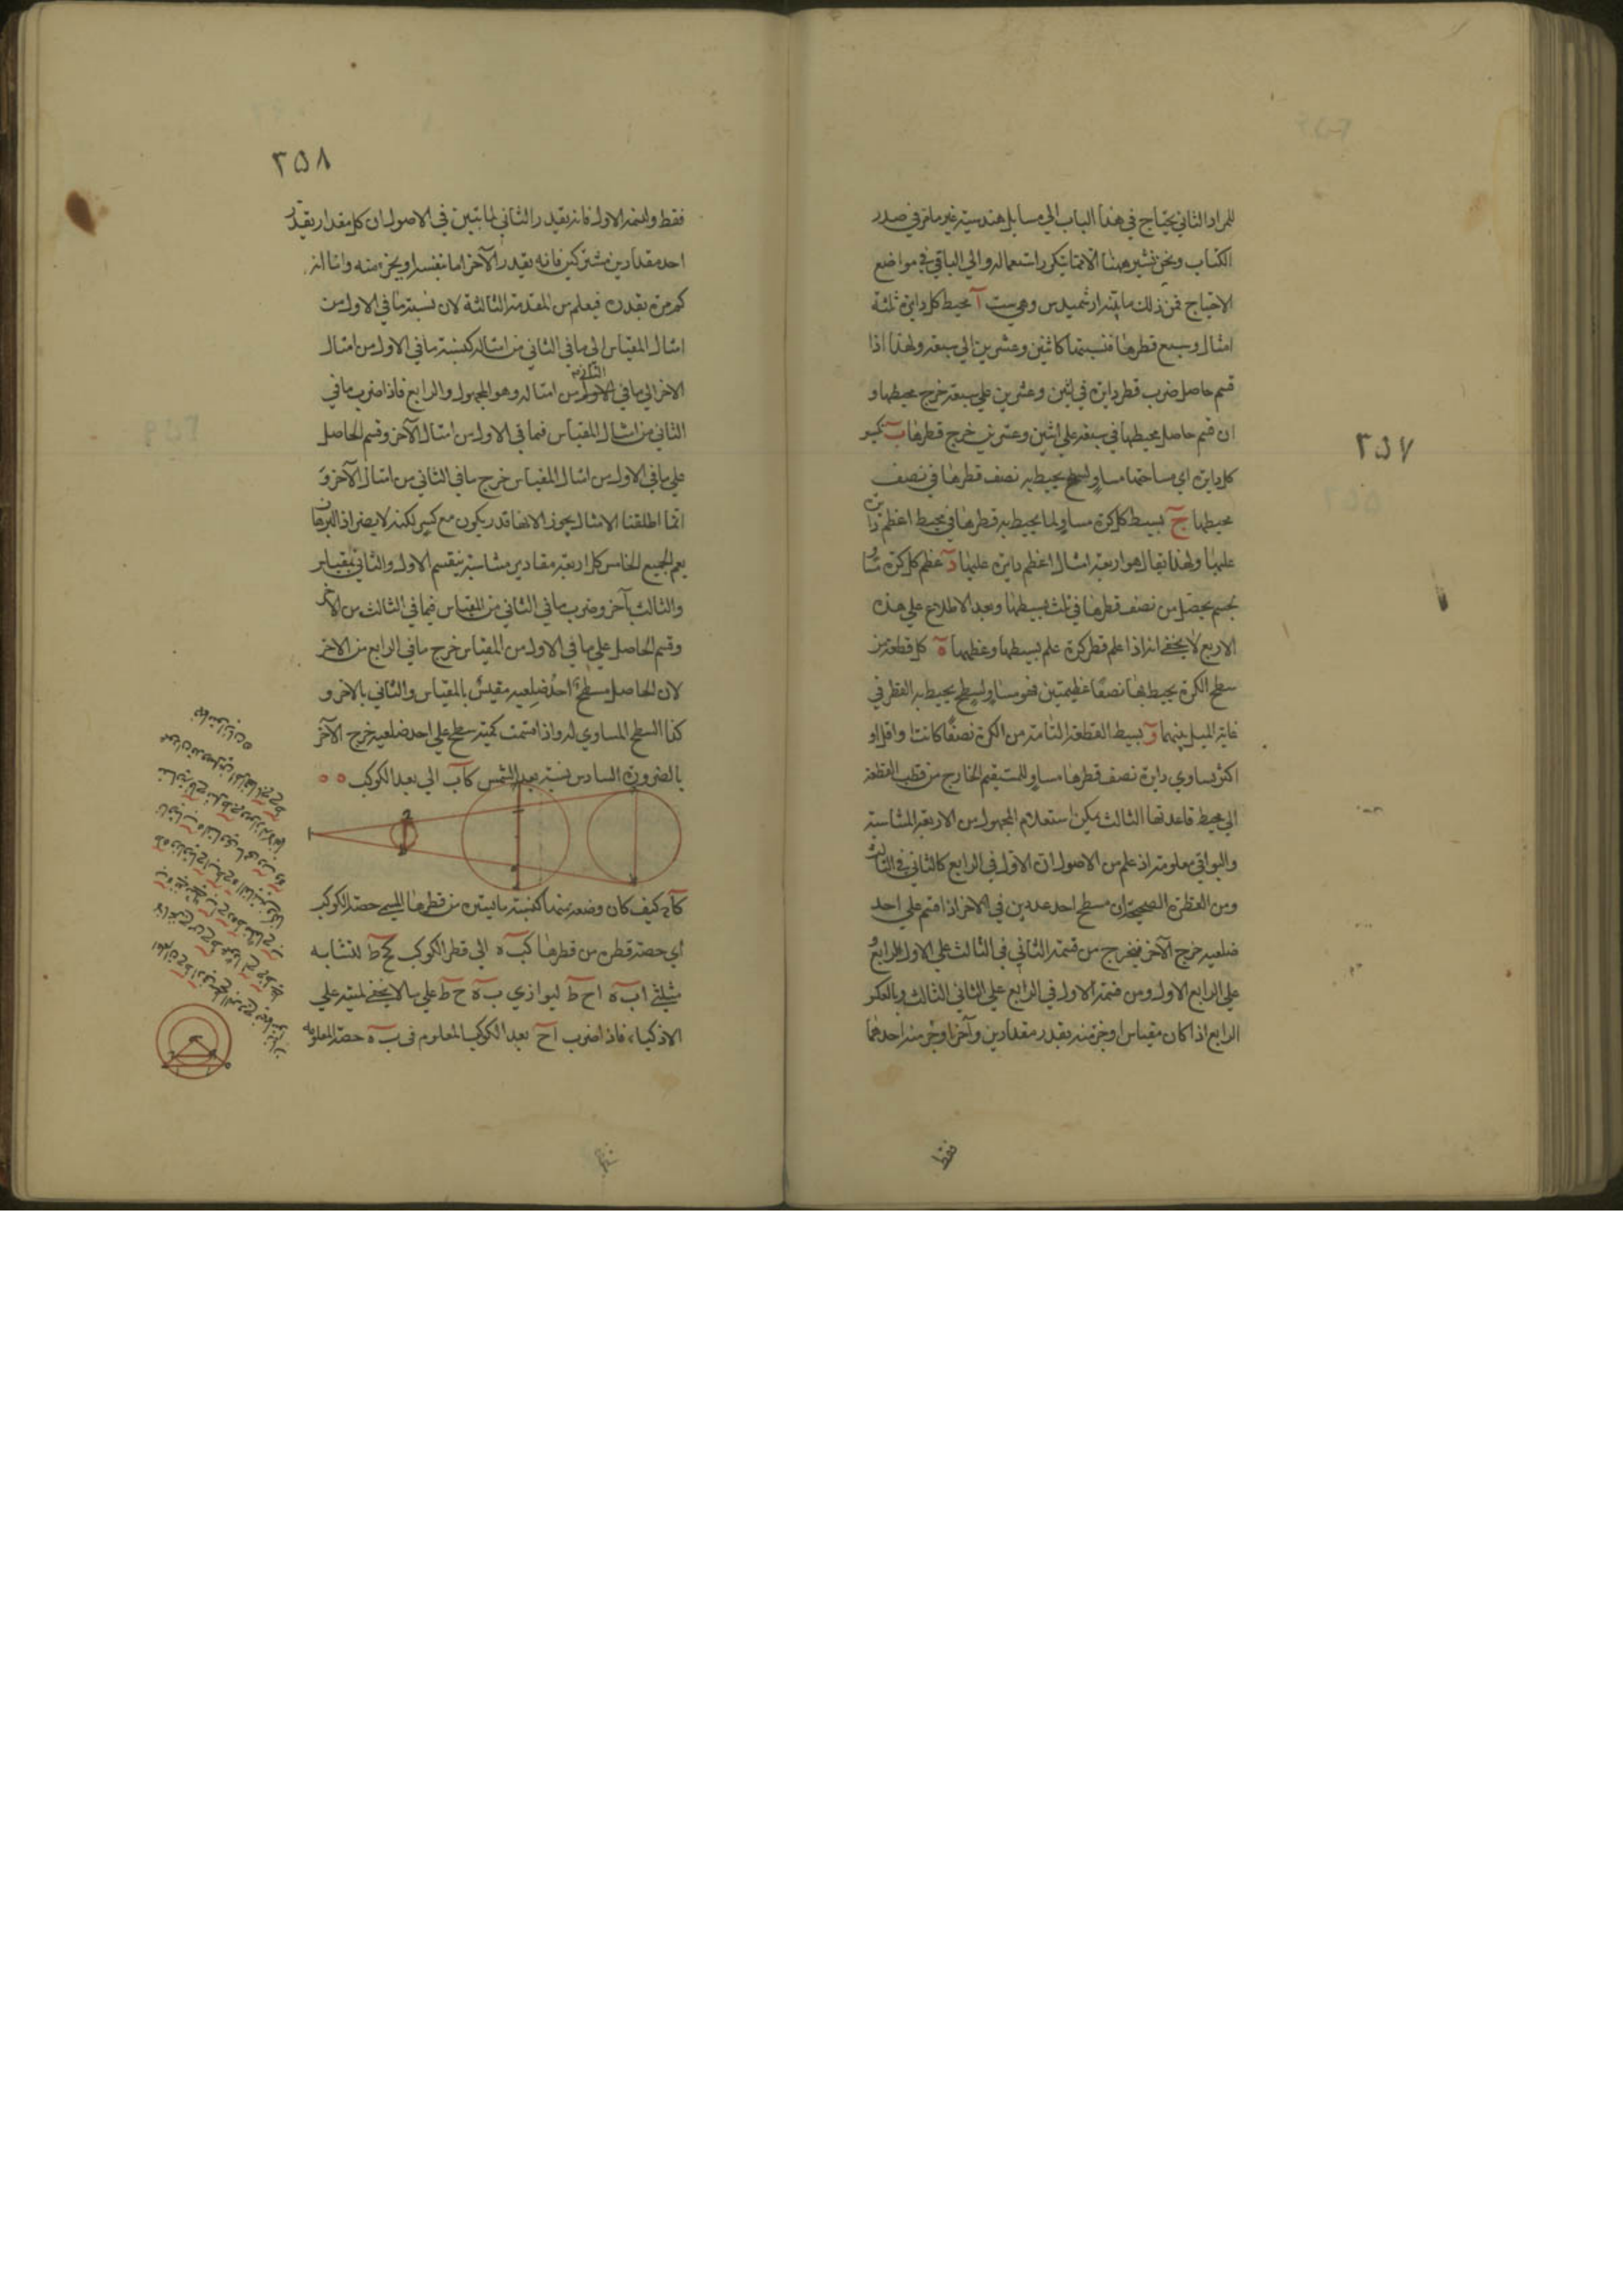 ٢٥٧
للمراد الثاني يحتاج في هذا الباب الي مسايل هندسية غير ما مر في صدر
الكتاب ونحن نشير ههنا الا فيما يتكرر استعماله والي الباقي في مواضع
الاحتياج فمن ذلك ما بينه ارشميدس وهي ست آ محيط كل دايرة ثلثة
امثال وسبع قطرها فنسبتهما كاثنين وعشرين الي سبعة ولهذا اذا
قسم حاصل ضرب قطر دايرة في اثنين وعشرين علي سبعة خرج محيطها و
ان قسم حاصل محيطها في سبعة علي اثنين وعشرين خرج قطرها ب تكسير
كل دايرة اي مساحتها مساو لسطح يحيط به نصف قطرها في نصف
محيطها ج بسيط كل كرة مساو لما يحيط به قطرها في محيط اعظم دايرة
عليها ولهذا يقال هو اربعة امثال اعظم دايرة عليها د عظم كل كرة مساو
لجسم يحصل من نصف قطرها في ثلث بسيطها وبعد الاطلاع علي هذه
الاربع لا يخفي انه اذا علم قطر كرة علم بسيطها وعظمها ه كل قطعة من
سطح الكرة يحيط بها نصفا عظيمتين فهو مساو لسطح يحيط به القطر في
غاية الميل بينهما و بسيط القطعة التامة من الكرة نصفا كانت او اقل او
اكثر يساوي دايرة نصف قطرها مساو للمستقيم الخارج من قطب القطعة
الي محيط قاعدتها الثالث يمكن استعلام المجهول من الاربعة المتناسبة
والبواقي معلومة اذ علم من الاصول ان الاول في الرابع كالثاني في الثالث
ومن الفطرة الصحيحة ان مسطح احد عددين في الاخر اذا قسم علي احد
ضلعيه خرج الآخر فيخرج من قسمة الثاني في الثالث علي الاول الرابع و
علي الرابع الاول ومن قسمة الاول في الرابع علي الثاني الثالث وبالعكس
الرابع اذا كان مقياس او جزء منه يقدر مقدارين وآخر او جزء منه احدهما
فقط
٢٥٨
فقط وليكن الاول فانه يقدر الثاني لما تبين في الاصول ان كل مقدار يقدر
احد مقدارين مشتركين فانه يقدر الآخر اما بنفسه او بجزء منه واما انه
كم مرة يقدره فيعلم من المقدمة الثالثة لان نسبة ما في الاول من
امثال المقياس الي ما في الثاني من امثاله كنسبة ما في الاول من امثال
الاخر الي ما في الثاني من امثاله وهو المجهول والرابع فاذا ضرب ما في
الثاني من امثال المقياس فيما في الاول من امثال الآخر وقسم الحاصل
علي ما في الاول من امثال المقياس خرج ما في الثاني من امثال الآخر و
انما اطلقنا الامثال بجوز الانها قد يكون مع كسر لكنه لا يضر اذ البرهان
يعم الجميع الخامس كل اربعة مقادير متناسبة ينقسم الاول والثاني بمقياس
والثالث بآخر وضرب ما في الثاني من المقياس فيما في الثالث من الآخر
وقسم الحاصل علي ما في الاول من المقياس خرج ما في الرابع من الاخر
لان الحاصل مسطح احد ضلعيه مقيس بالمقياس والثاني بالاخر و
كذا السطح المساوي له واذا قسمت كمية سطح علي احد ضلعيه خرج الآخر
بالضرورة السادس نسبة بعد الشمس كآب الي بعد الكوكب
كآح كيف كان وضعه منها كنسبة ما يستره من قطرها المسمي حصة الكوكب
اي حصة قطره من قطرها كب ه الي قطر الكوكب كح ط لتشابه
مثلثي اب ه اح ط لتوازي ب ه ح ط علي ما لا يخفي لميته علي
الاذكياء فاذا ضرب اح بعد الكوكب المعلوم في ب ه حصة المعلومة